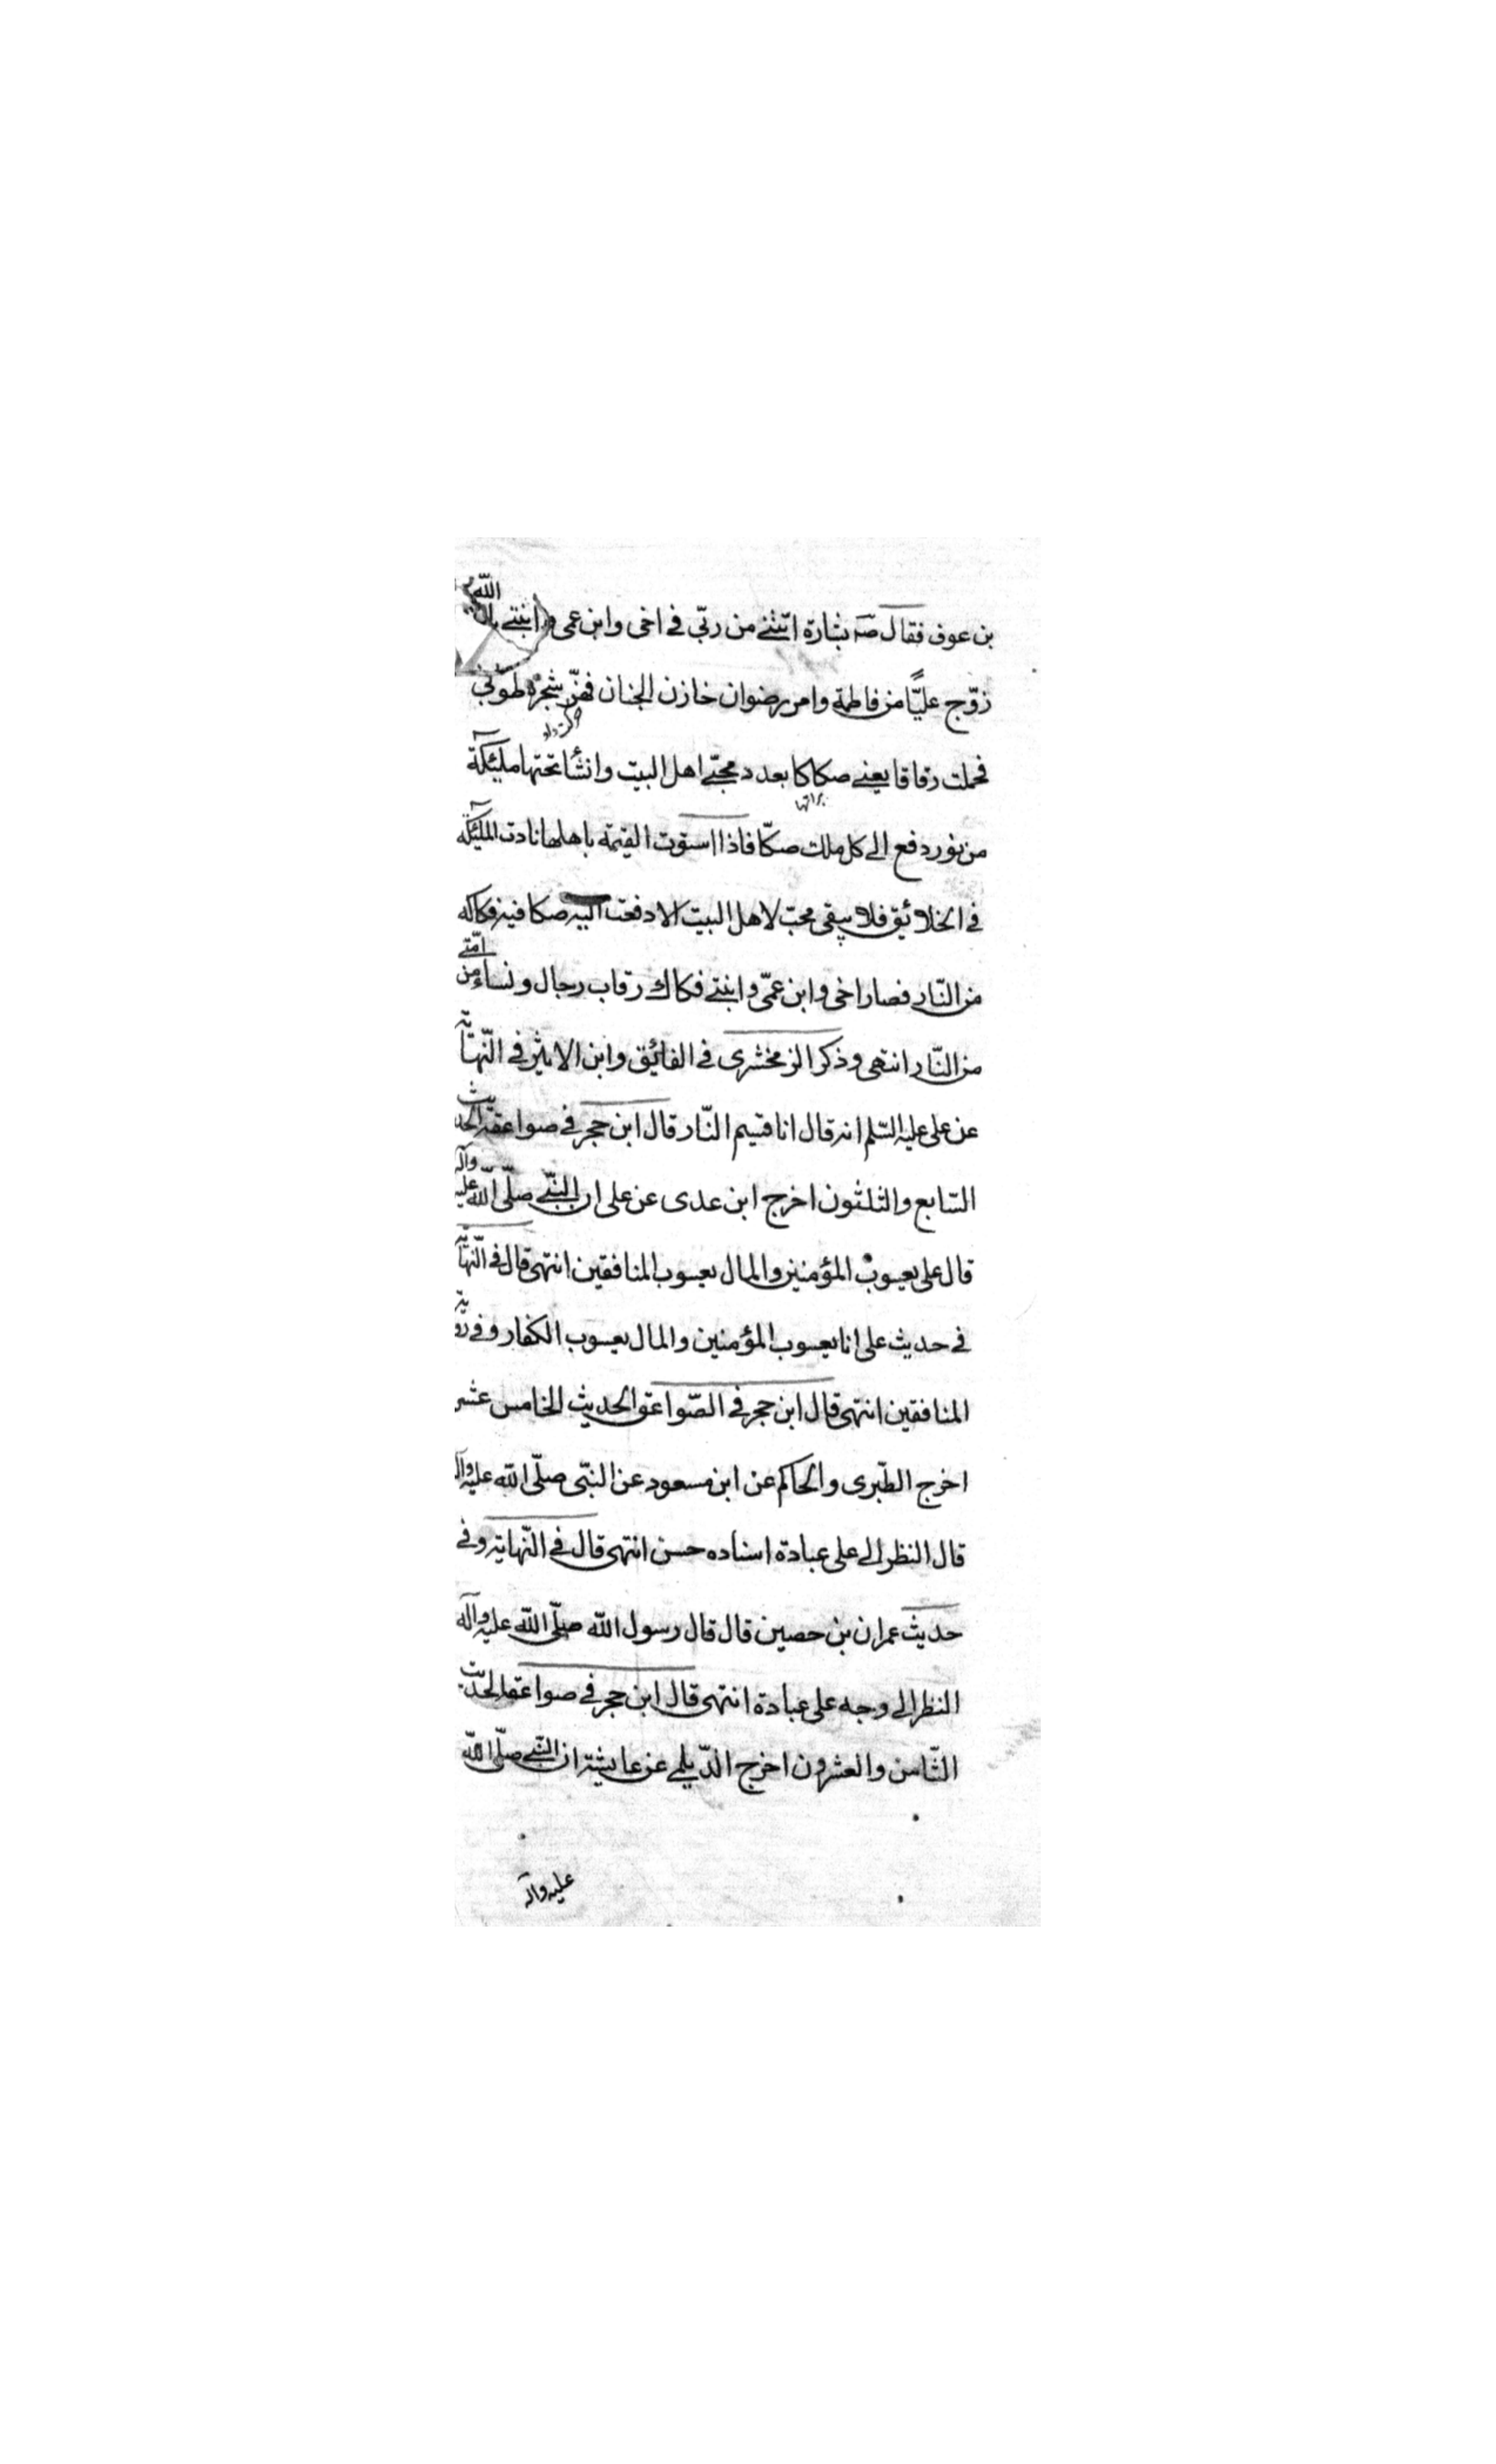 بن عوف فقال صه بشارة اتتنے من ربّي فے اخى وابن عمى وابنتے بان الله
زوّج عليًّا من فاطمة وامر رضوان خازن الجنان فهزّ شجرة طوبى
فحملت رقاقا يعنے صكاكا بعدد محبّے اهل البيت وانشأ تحتها ملئكة
من نور دفع الے كل ملك صكّا فاذا استوت القيمة باهلها نادت الملئكة
فے الخلائق فلا يبقى محبّ لاهل البيت الا دفعت اليه صكا فيه فكاكه
من النّار فصار اخى وابن عمّى وابنتے فكاك رقاب رجال ونساء من امّتے
من النّار انتهى وذكر الزمخشرى فے الفائق وابن الاثير فے النّهاية
عن على عليه السّلم انه قال انا قسيم النّار قال ابن حجر فے صواعقه الحديث
السّابع والثلثون اخرج ابن عدى عن على ان النبّے صلّى الله عليه وآله
قال على يعسوب المؤمنين والمال يعسوب المنافقين انتهى قال فے النّهاية
فے حديث على انا يعسوب المؤمنين والمال يعسوب الكفار وفے رواية
المنافقين انتهى قال ابن حجر فے الصّواعق الحديث الخامس عشر
اخرج الطّبرى والحاكم عن ابن مسعود عن النبّى صلّى الله عليه وآله
قال النظر الے على عبادة اسناده حسن انتهى قال فے النّهاية وفے
حديث عمران بن حصين قال قال رسول الله صلّى الله عليه وآله
النظر الے وجه على عبادة انتهى قال ابن حجر فے صواعقه الحديث
الثّامن والعشرون اخرج الدّيلمے عن عايشة ان النبّے صلّى الله
عليه وآله